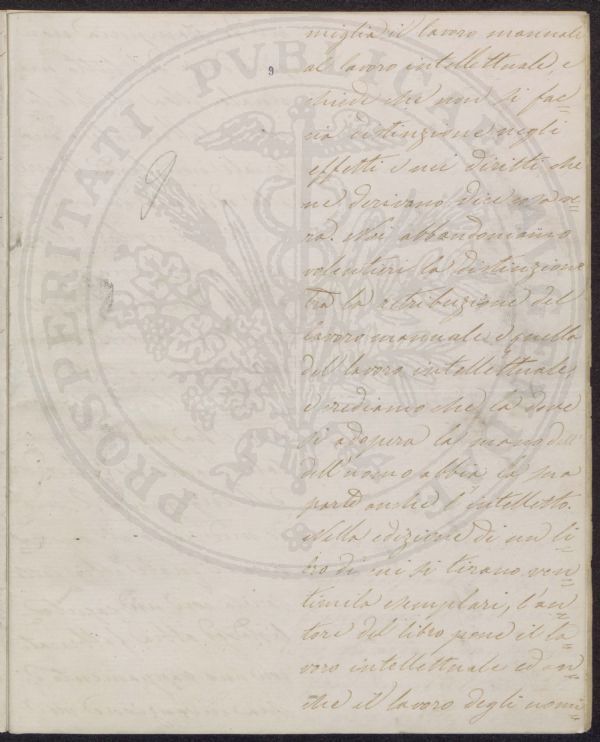 9
miglia il lavoro manuale
al lavoro intellettuale, e
chiede che non si fac=
cia distinzione negli
effetti e nei diritti che
ne derivano, dice
ra. Noi abbandoniamo
volentieri la distinzione
tra la retribuzione del
lavoro manuale e quella
del lavoro intellettuale,
e crediamo che la dove
si adopera la mano dell'
dell'uomo abbia la sua
parte anche l'intelletto.
Nella edizione di un li=
bro di cui si tirano ven=
timila esemplari, l'au=
tore del libro pone il la=
voro intellettuale ed an=
che il lavoro degli uomi
PROSPERITATI PUBLICAE